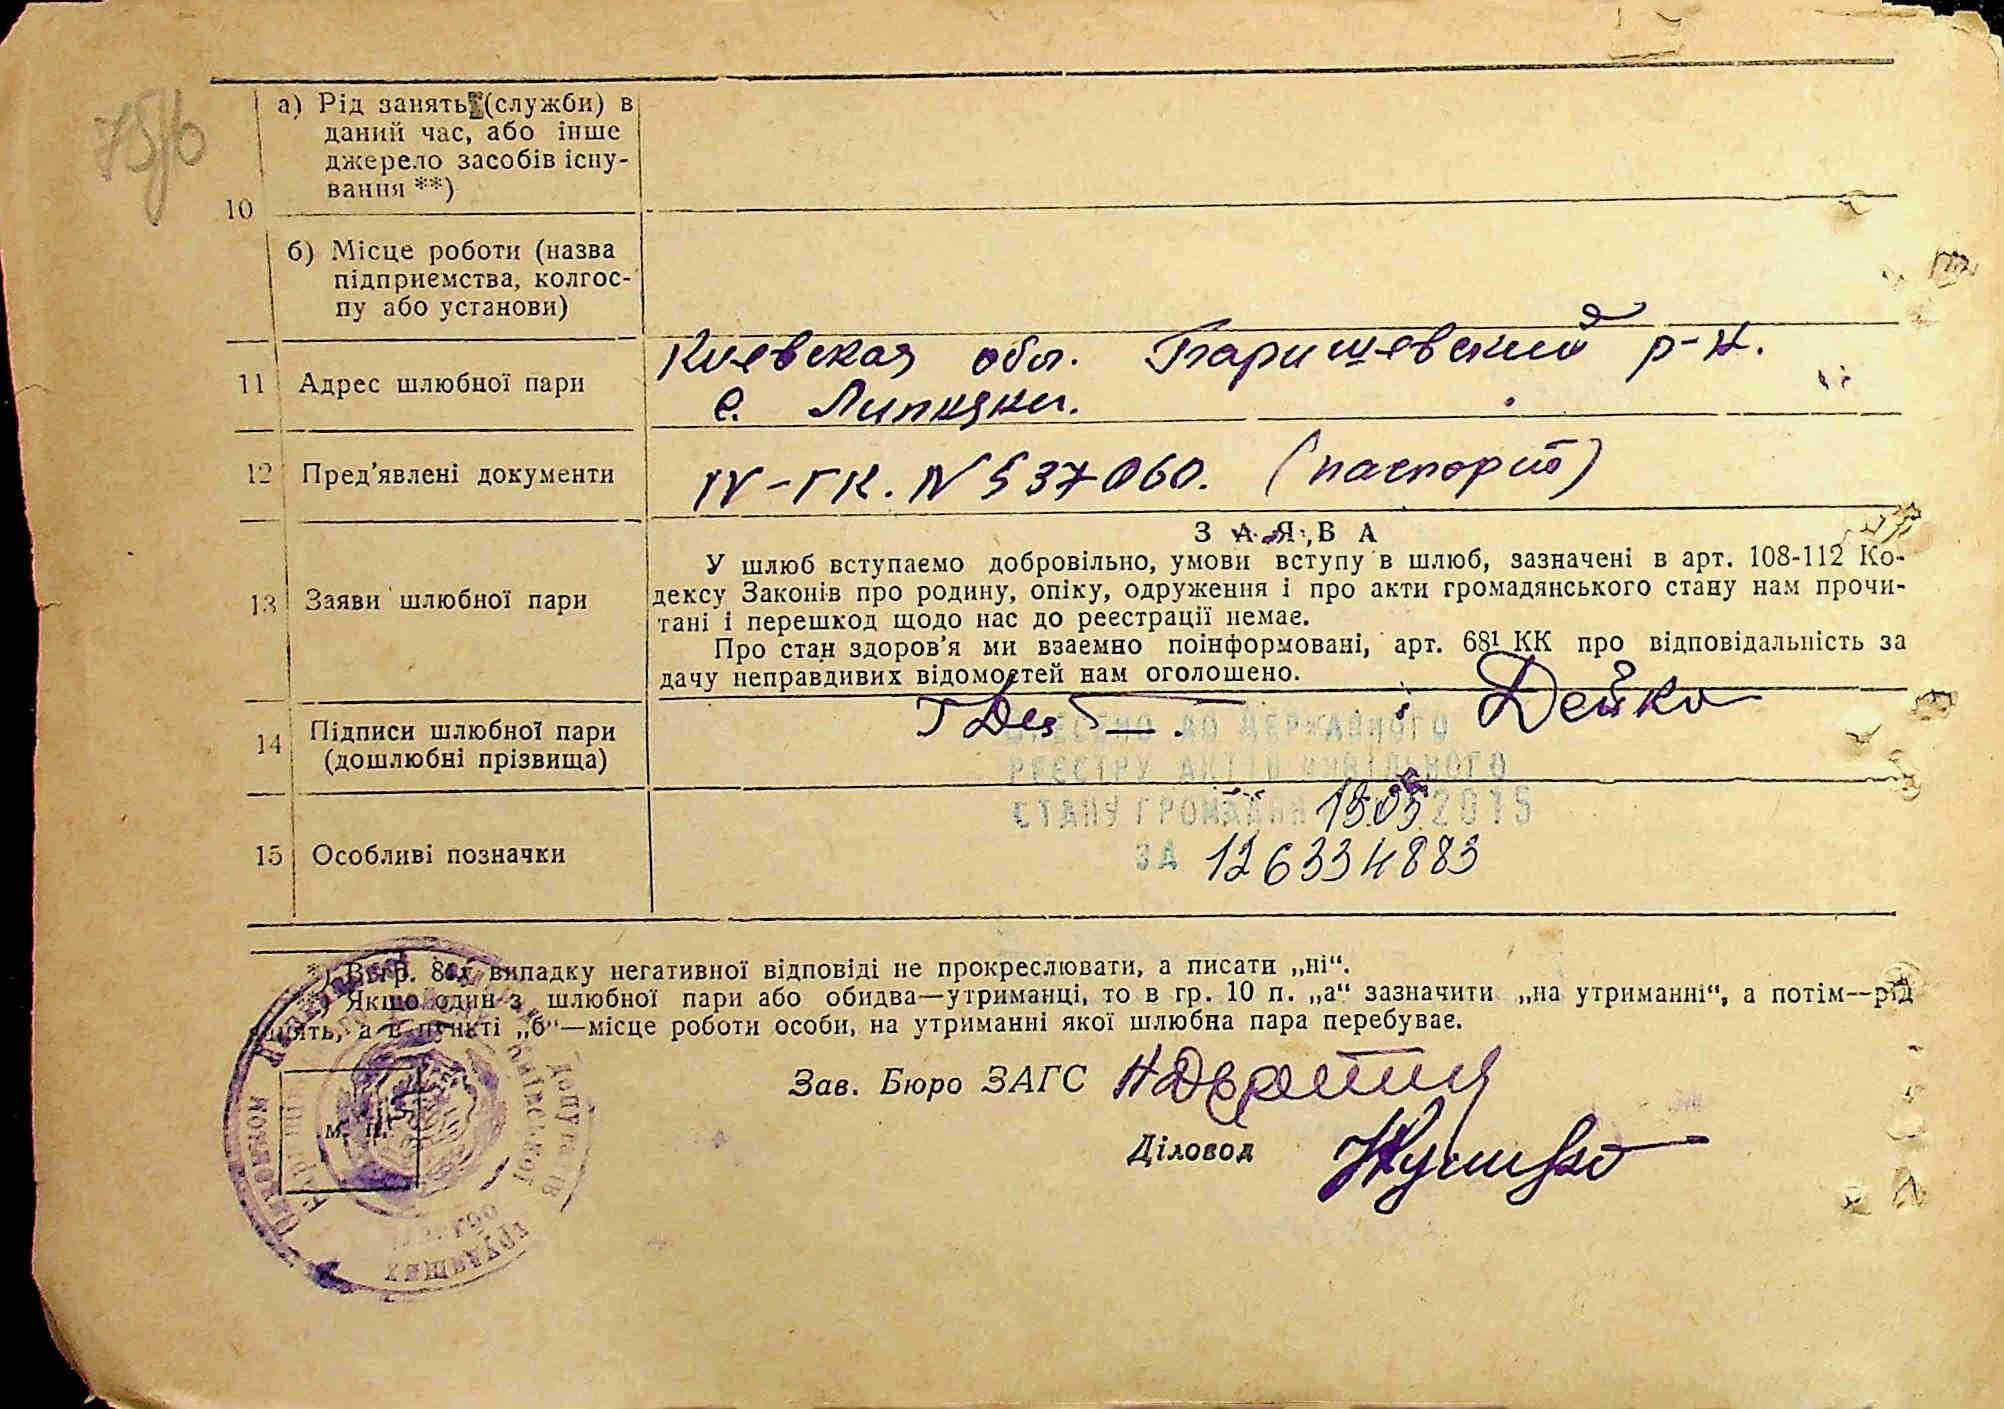 75/6
10
а) Рід занять (служби) в
даний час, або інше
джерело засобів існу-
вання **)
б) Місце роботи (назва
підприємства, колгос-
пу або установи)
11 Адрес шлюбної пари
Киевская обл. Баришевский р-н.
с. Липняки.
12 Пред'явлені документи
IV-ГК. N 537060. (паспорт)
13 Заяви шлюбної пари
ЗАЯВА
У шлюб вступаємо добровільно, умови вступу в шлюб, зазначені в арт. 108-112 Ко-
дексу Законів про родину, опіку, одруження і про акти громадянського стану нам прочи-
тані і перешкод щодо нас до реєстрації немає.
Про стан здоров'я ми взаємно поінформовані, арт. 68¹ КК про відповідальність за
дачу неправдивих відомостей нам оголошено.
14 Підписи шлюбної пари
(дошлюбні прізвища)
Дейко
ВНЕСЕНО ДО ДЕРЖАВНОГО
РЕЄСТРУ АКТІВ ЦИВІЛЬНОГО
СТАНУ ГРОМАДЯН 2015
ЗА 126334883
15 Особливі позначки
*) В гр. 8 у випадку негативної відповіді не прокреслювати, а писати „ні“.
**) Якщо один з шлюбної пари або обидва—утриманці, то в гр. 10 п. „а“ зазначити „на утриманні“, а потім—рід
занять, а в пункті „б“—місце роботи особи, на утриманні якої шлюбна пара перебуває.
Зав. Бюро ЗАГС
Діловод
м. п.
Виконком
Київської
депутатів
трудящих